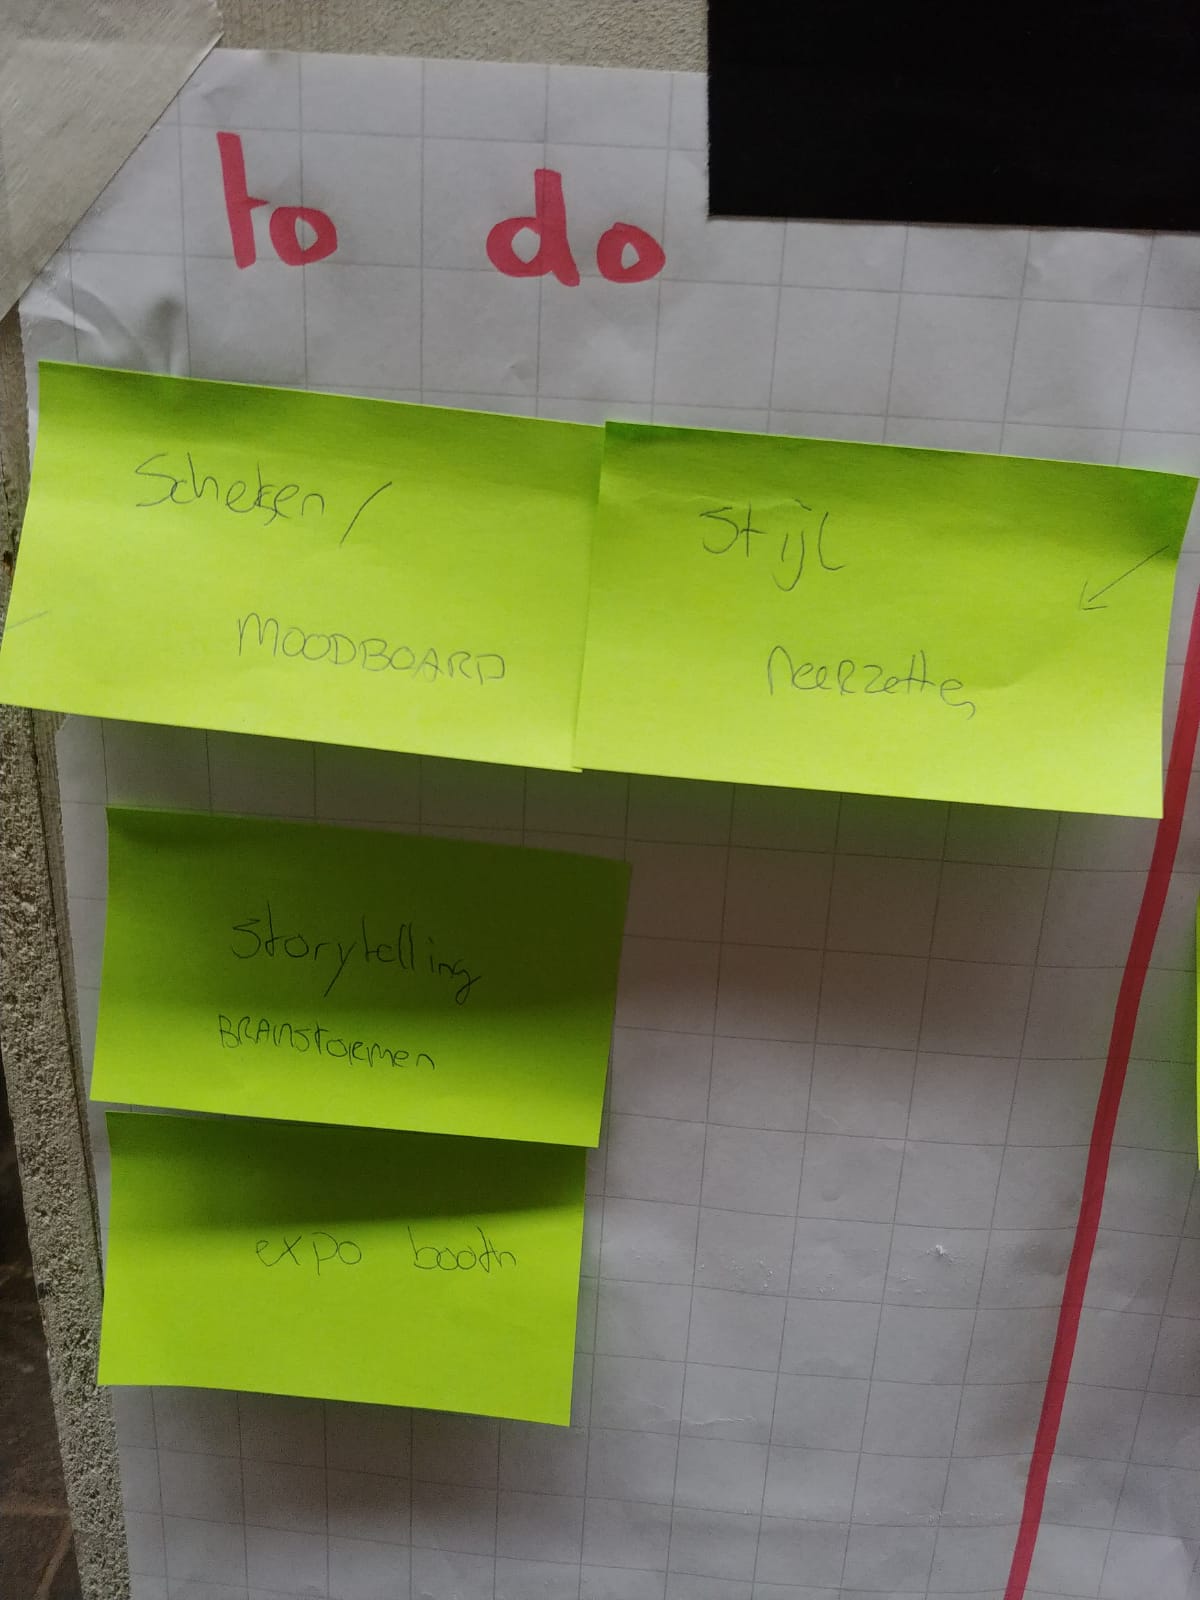 to do
Schetsen /
MOODBOARD
Stijl
neerzetten
Storytelling
BRAINSTORMEN
expo booth